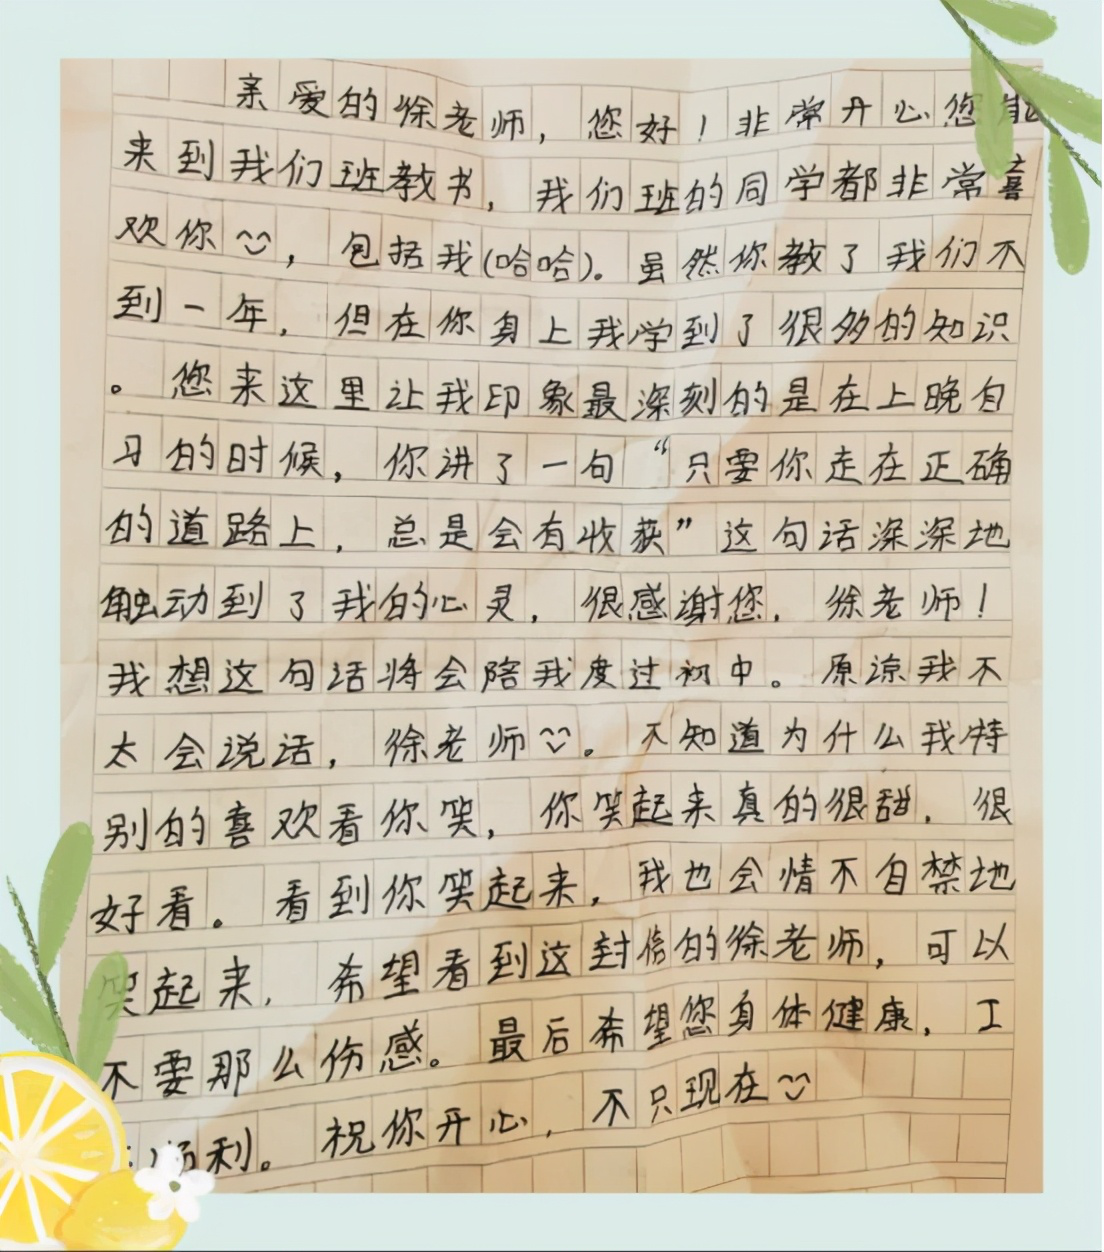 亲爱的徐老师，您好！非常开心您能
来到我们班教书，我们班的同学都非常喜
欢你，包括我(哈哈)。虽然你教了我们不
到一年，但在你身上我学到了很多的知识
。您来这里让我印象最深刻的是在上晚自
习的时候，你讲了一句“只要你走在正确
的道路上，总是会有收获”这句话深深地
触动到了我的心灵，很感谢您，徐老师！
我想这句话将会陪我度过初中。原谅我不
太会说话，徐老师。不知道为什么我特
别的喜欢看你笑，你笑起来真的很甜，很
好看。看到你笑起来，我也会情不自禁地
笑起来，希望看到这封信的徐老师，可以
不要那么伤感。最后希望您身体健康，工
顺利。祝你开心，不只现在